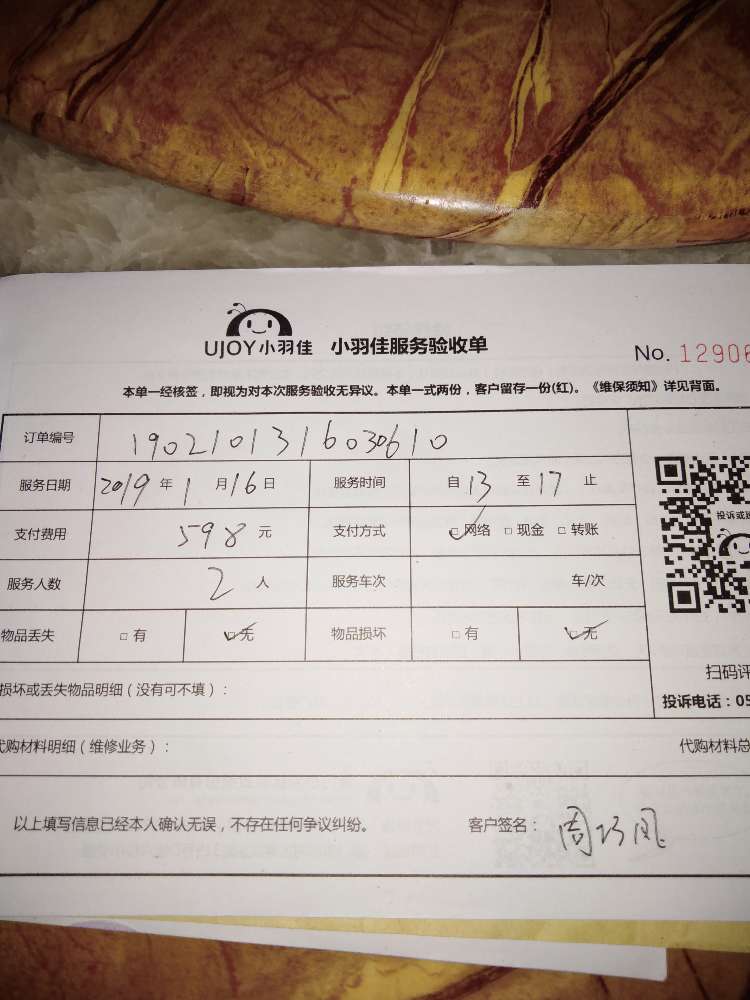 UJOY小羽佳 小羽佳服务验收单
No. 12906
本单一经核签，即视为对本次服务验收无异议。本单一式两份，客户留存一份(红)。《维保须知》详见背面。
订单编号 1902101316030610
服务日期 2019 年 1 月 16 日 服务时间 自 13 至 17 止
投诉或
支付费用 598 元 支付方式 □ 网络 □ 现金 □ 转账
服务人数 2 人 服务车次 车/次
物品丢失 □ 有 □ 无 物品损坏 □ 有 □ 无
扫码评
损坏或丢失物品明细（没有可不填）：
投诉电话：05
代购材料明细（维修业务）： 代购材料总
以上填写信息已经本人确认无误，不存在任何争议纠纷。 客户签名：周巧凤